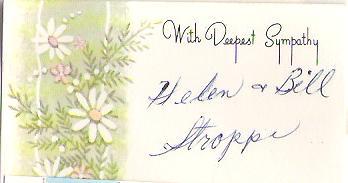 With Deepest Sympathy
Helen & Bill
Stroppe